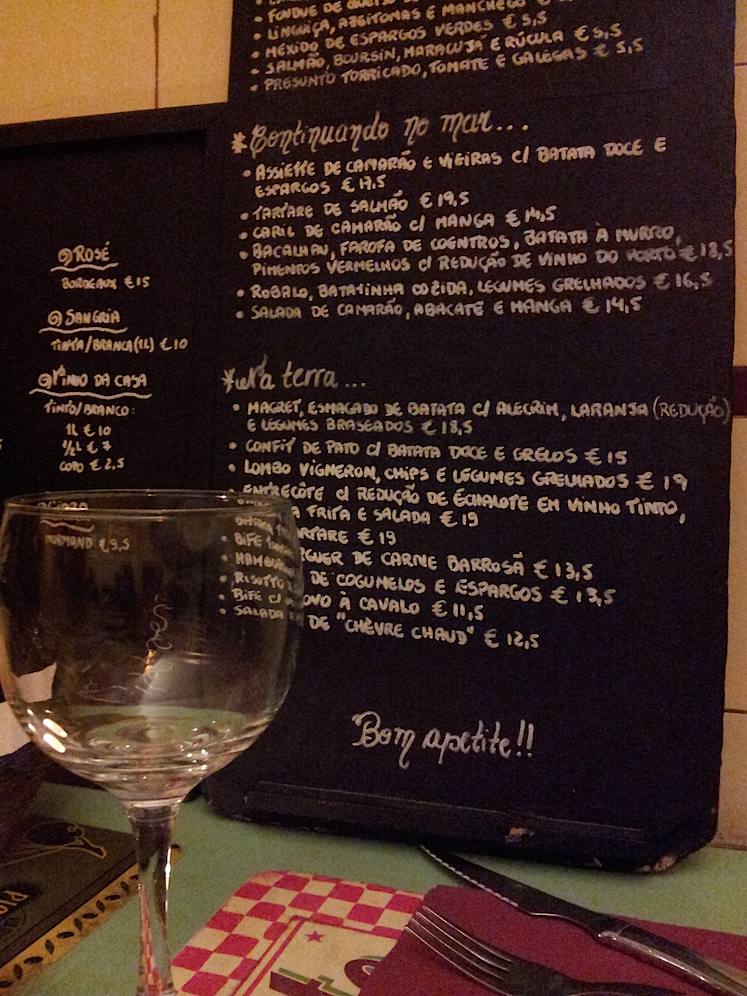 • LINGUIÇA, AZEITONAS E MANCHEGO € 5,5
• MEXIDO DE ESPARGOS VERDES € 5,5
• SALMÃO, BOURSIN, MARACUJÁ E RÚCULA € 5,5
• PRESUNTO TORRICADO, TOMATE E GALEGAS € 5,5
*Continuando no mar...
• ASSIETTE DE CAMARÃO E VIEIRAS C/ BATATA DOCE E
ESPARGOS € 17,5
• TARTARE DE SALMÃO € 19,5
• CARIL DE CAMARÃO C/ MANGA € 14,5
• BACALHAU, FAROFA DE COENTROS, BATATA À MURRO,
PIMENTOS VERMELHOS C/ REDUÇÃO DE VINHO DO PORTO € 18,5
• ROBALO, BATATINHA COZIDA, LEGUMES GRELHADOS € 16,5
• SALADA DE CAMARÃO, ABACATE E MANGA € 14,5
*Na terra...
• MAGRET, ESMAGADO DE BATATA C/ ALECRIM, LARANJA (REDUÇÃO)
E LEGUMES BRASEADOS € 18,5
• CONFIT DE PATO C/ BATATA DOCE E GRELOS € 15
• LOMBO VIGNERON, CHIPS E LEGUMES GRELHADOS € 19
• ENTRECÔTE C/ REDUÇÃO DE ÉCHALOTE EM VINHO TINTO,
FRITA E SALADA € 19
• BIFE TARTARE € 19
• HAMBURGUER DE CARNE BARROSÃ € 13,5
• RISOTTO DE COGUMELOS E ESPARGOS € 13,5
• BIFE C/ OVO À CAVALO € 11,5
• SALADA DE "CHÈVRE CHAUD" € 12,5
Bom apetite!!
ROSÉ
BORDEAUX € 15
SANGRIA
TINTA/BRANCA (1L) € 10
VINHO DA CASA
TINTO/BRANCO:
1L € 10
1/2 L € 7
COPO € 2,5
NORMAND € 9,5